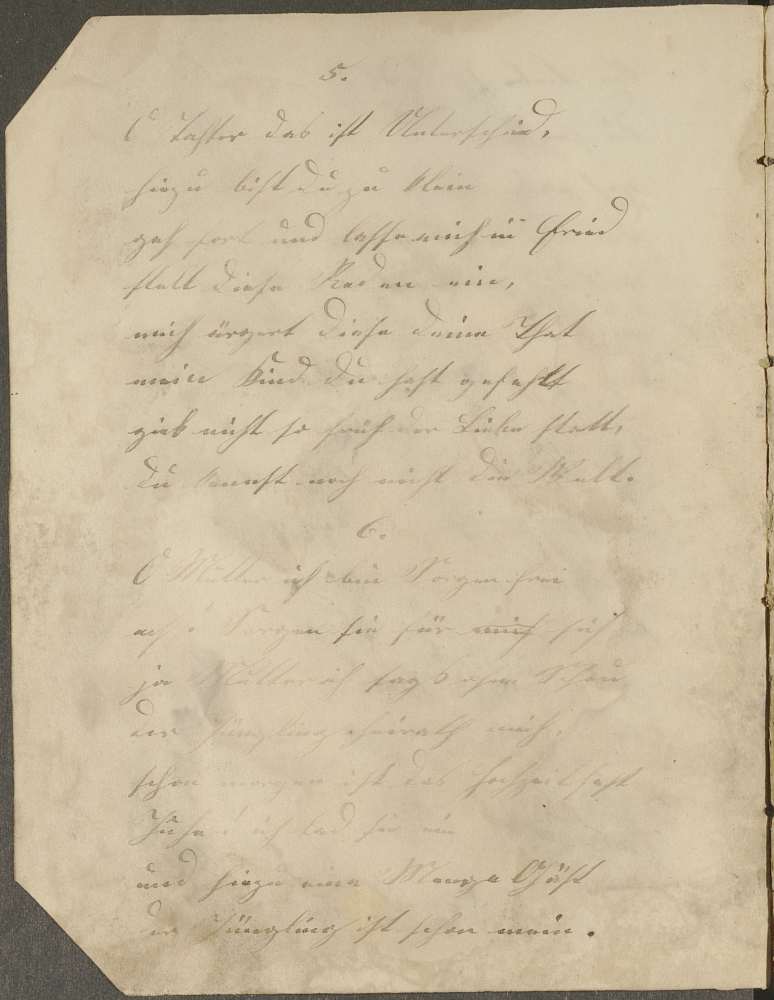 5.
O Tochter das ist Unterschied,
hiezu bist du zu klein
geh fort und lasse mich in Fried
stell diese Reden ein,
mich ärgert diese deine That
mein Kind du hast gefehlt
gieb nicht so früh der Liebe statt,
du kennst noch nicht die Welt.
6.
O Mutter ich bin Sorgen frei
ach! Sorgen sie für mich sich
ja Mutter ich sags ohne Scheu
der Jüngling heirath mich,
schon morgen ist das Hochzeitsfest
Juhe! ich lad sie ein
und hiezu eine Menge Gäst
der Jüngling ist schon mein.